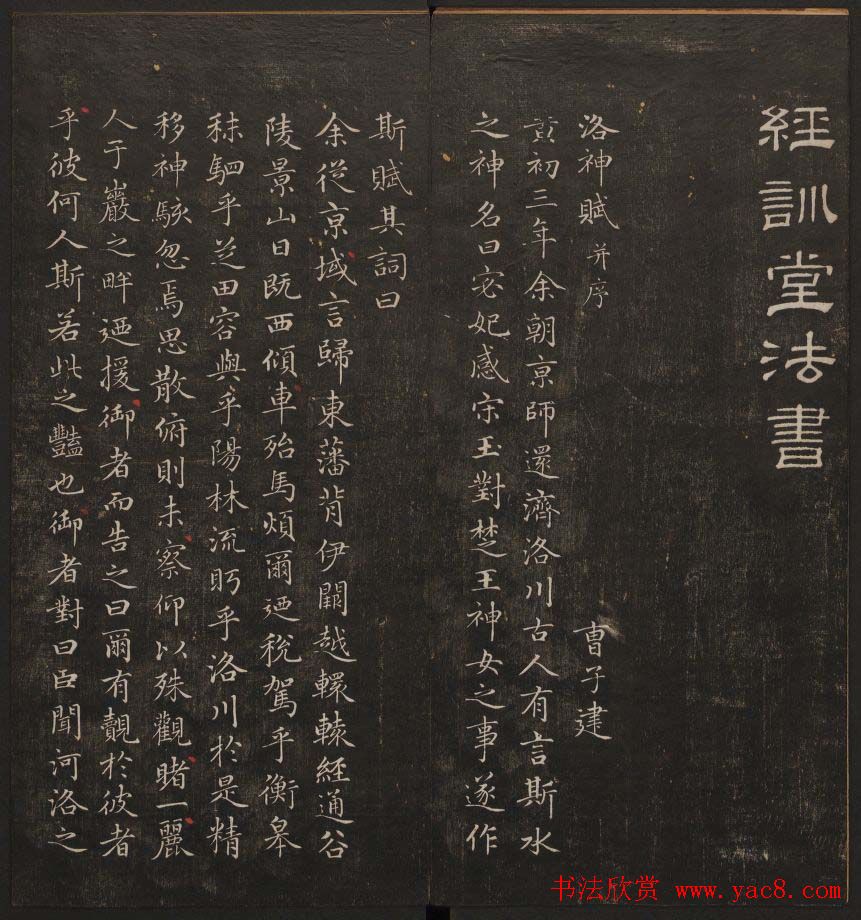 經訓堂法書
洛神賦 并序 曹子建
黃初三年余朝京師還濟洛川古人有言斯水
之神名曰宓妃感宋玉對楚王神女之事遂作
斯賦其詞曰
余從京域言歸東藩背伊闕越轘轅經通谷
陵景山日既西傾車殆馬煩爾迺稅駕乎衡皋
秣駟乎芝田容與乎陽林流眄乎洛川於是精
移神駭忽焉思散俯則未察仰以殊觀睹一麗
人于巖之畔迺援御者而告之曰爾有覿於彼者
乎彼何人斯若此之豔也御者對曰臣聞河洛之
书法欣赏 www.yac8.com